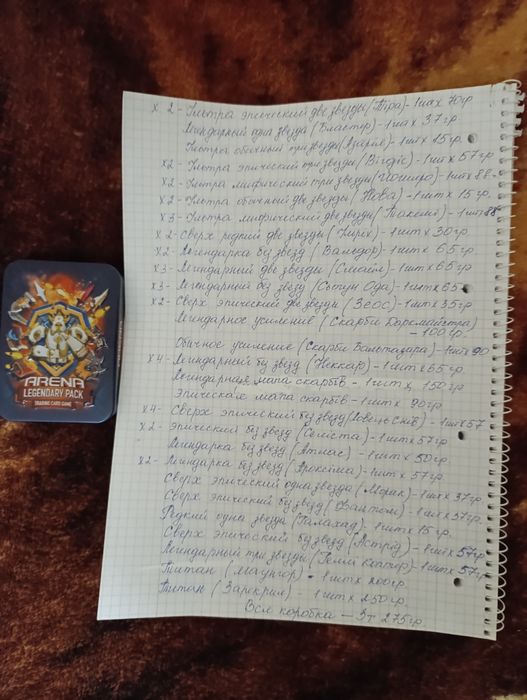 х 2 - Ультра эпический две звезды (Тіра) - 1шт х 70гр
Легендарный одна звезда (Бластер) - 1шт х 37гр
Ультра обычный три звезды (Азария) - 1шт х 15гр.
х2 - Ультра эпический три звезды - 1шт х 57гр
х2 - Ультра мифический три звезды - 1шт х 88.
х2 - Ультра обычный две звезды (Нова) - 1шт х 15гр.
х3 - Ультра мифический две звезды - 1шт 88
х2 - Сверх редкий две звезды - 1шт х 30гр
х2 - Легендарка без звезд (Вальдор) - 1шт х 65гр
х3 - Легендарный две звезды - 1шт х 65гр
х3 - Легендарный без звезд (Сьогун Ода) - 1шт х 65
х2 - Сверх эпический две звезды (Зеос) - 1шт х 35гр
Легендарное усиление (Скарби Борсмайстра)
- 100гр.
Обычное усиление (Скарби Бальтазара) - 1шт х 90
х4 - Легендарный без звезд (Неккар) - 1шт х 65гр.
Легендарная мапа скарбів - 1шт х 150гр
Эпическая мапа скарбів - 1шт х 90гр
х4 - Сверх эпический без звезд (Ловець снів) - 1шт х 57
х2 - Эпический без звезд (Селіста) - 1шт х 57гр
Легендарка без звезд (Атлас) - 1шт х 80гр.
х2 - Легендарка без звезд - 1шт х 57гр.
Сверх эпический одна звезда - 1шт х 37гр
Сверх эпический без звезд (Фантом) - 1шт х 37гр.
Редкий одна звезда (Галахад) - 1шт х 15гр.
Сверх эпический без звезд (Астрід) - 1шт х 57гр
Легендарный три звезды - 1шт х 57гр
Титан - 1шт х 200гр.
Титан (Заркрил) - 1шт х 250гр.
Вся коробка - 3т 275гр.
ARENA
LEGENDARY PACK
TRADING CARD GAME